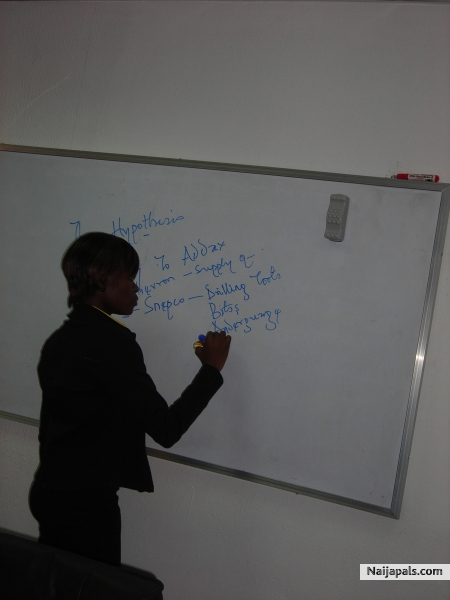 Hypothesis
To Addax
- supply of
- Snepco - Drilling Tools
Bits
Naijapals.com